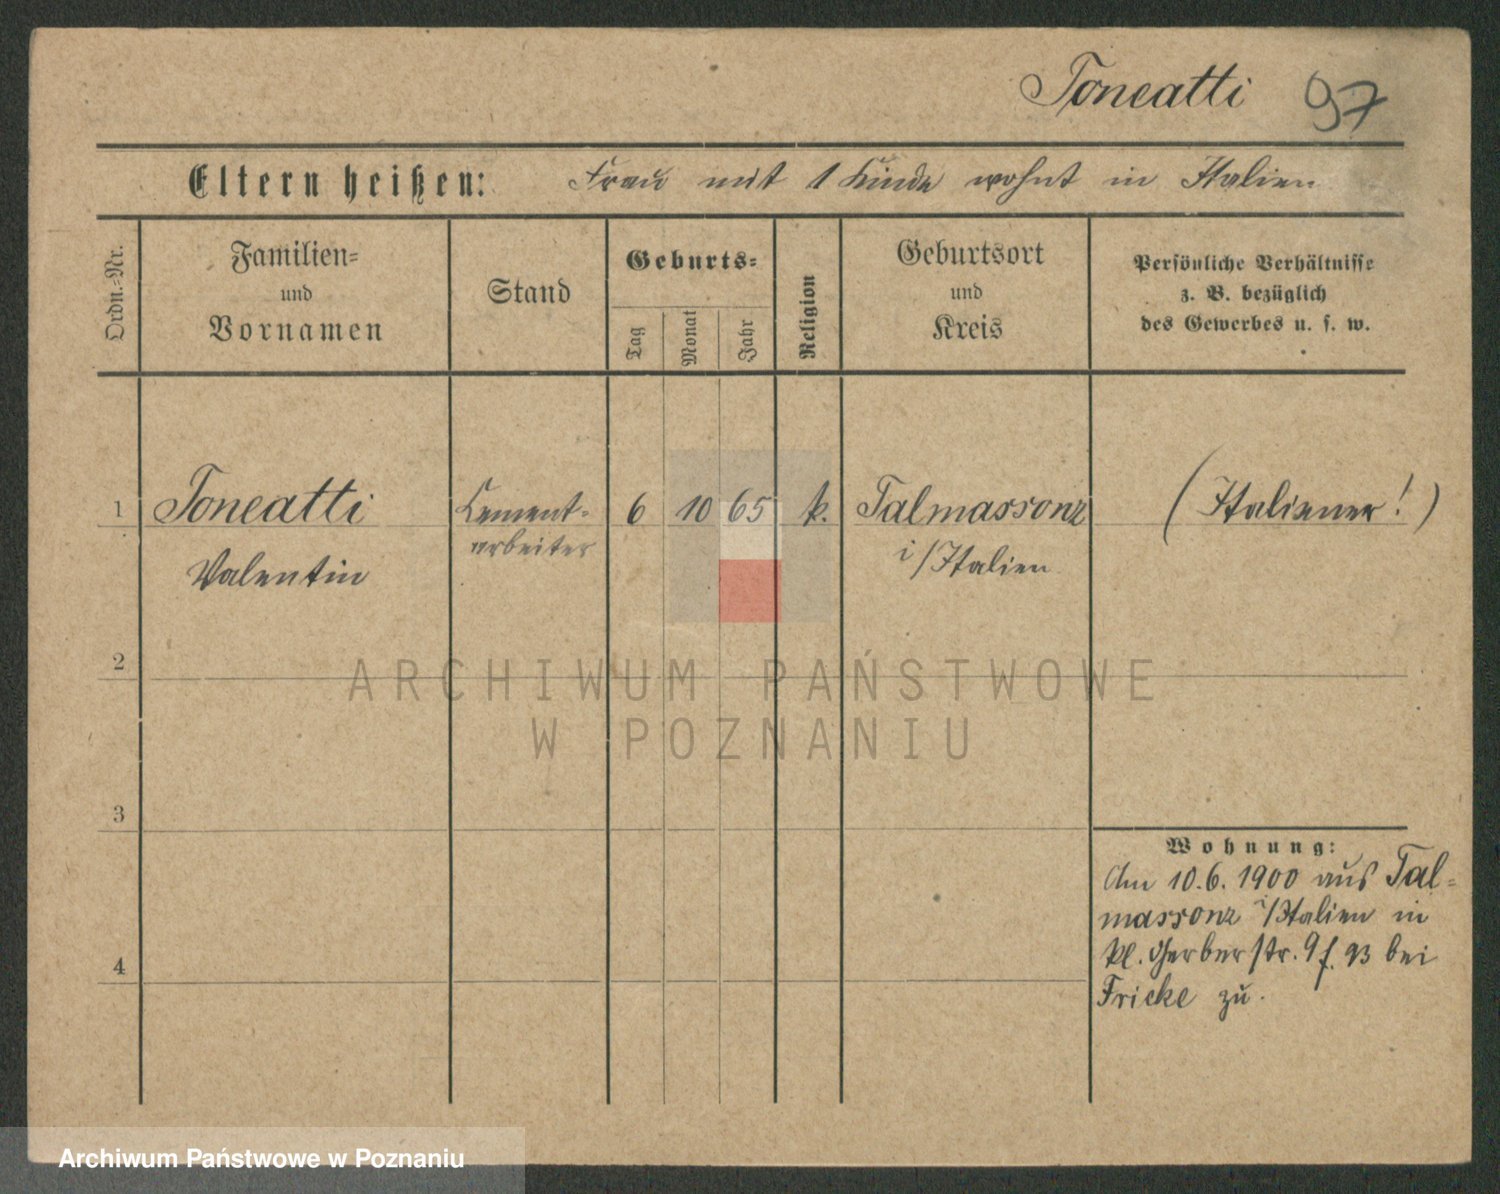 Toneatti 97
Eltern heißen: Frau mit 1 Kinde wohnt in Italien
Ordn.-Nr.
Familien-
und
Vornamen
Stand
Geburts-
Tag
Monat
Jahr
Religion
Geburtsort
und
Kreis
Persönliche Verhältnisse
z. B. bezüglich
des Gewerbes u. s. w.
1 Toneatti Cement- 6 10 65 k. Talmassonz (Italiener!)
Valentin arbeiter i/Italien
2
ARCHIWUM PAŃSTWOWE
W POZNANIU
3
Wohnung:
Am 10.6.1900 aus Tal-
massonz i/Italien in
kl. Gerberstr. 9 bei
Fricke zu.
4
Archiwum Państwowe w Poznaniu